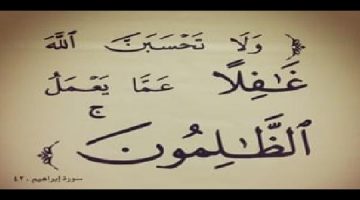 ﴿ وَلَا تَحْسَبَنَّ ٱللَّهَ
غَٰفِلًا عَمَّا يَعْمَلُ
ٱلظَّٰلِمُونَ ۚ ﴾
سورة إبراهيم ، ٤٢